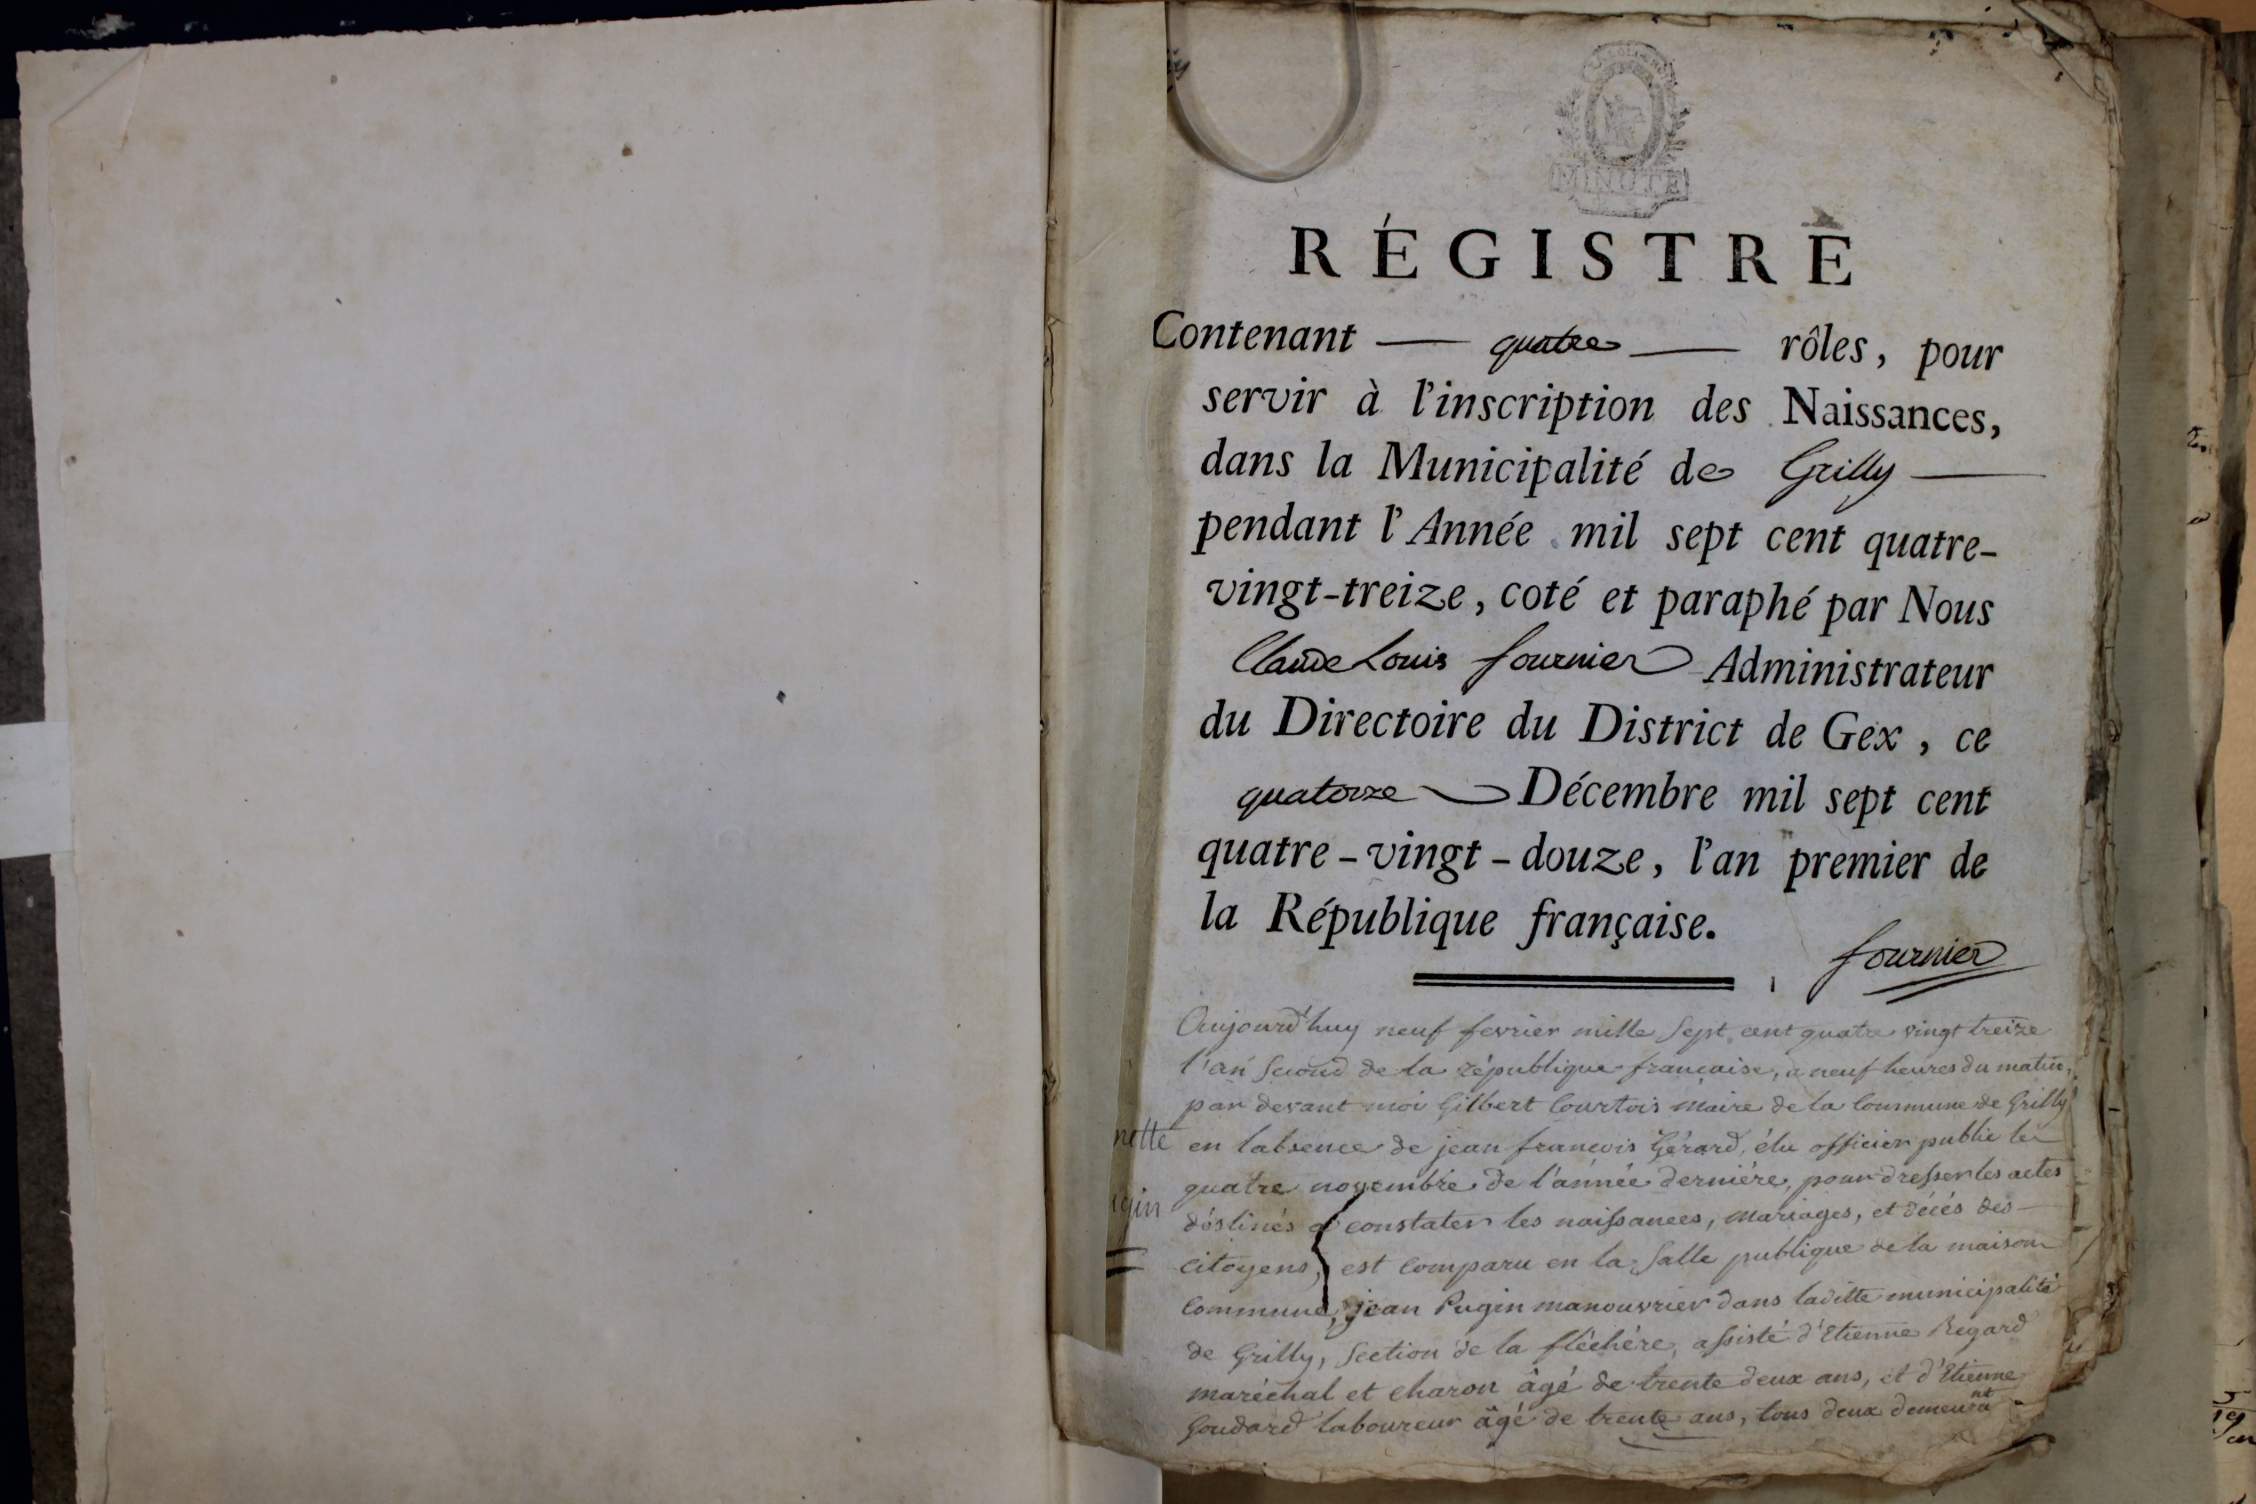 MINUTE
RÉGISTRE
Contenant — quatre — rôles, pour
servir à l'inscription des Naissances,
dans la Municipalité de Grilly —
pendant l'Année mil sept cent quatre-
vingt-treize, coté et paraphé par Nous
Claude Louis fournier Administrateur
du Directoire du District de Gex, ce
quatorze Décembre mil sept cent
quatre-vingt-douze, l'an premier de
la République française.
fournier
1
Aujourd'huy neuf fevrier mille sept cent quatre vingt treize
l'an second de la république francaise, a neuf heures du matin,
par devant moi Gilbert Courtois maire de la Commune de Grilly
en labsence de jean francois Gérard, élu officier public le
quatre novembre de l'année derniére, pour dresser les actes
déstinés a constater les naissances, mariages, et décés des
citoyens, est comparu en la salle publique de la maison
commune, jean Pugin manouvrier dans laditte municipalité
de Grilly, section de la fléchére, assisté d'Etienne Regard
maréchal et charon âgé de trente deux ans, et d'Etienne
Goudard laboureur âgé de trente ans, tous deux demeurant